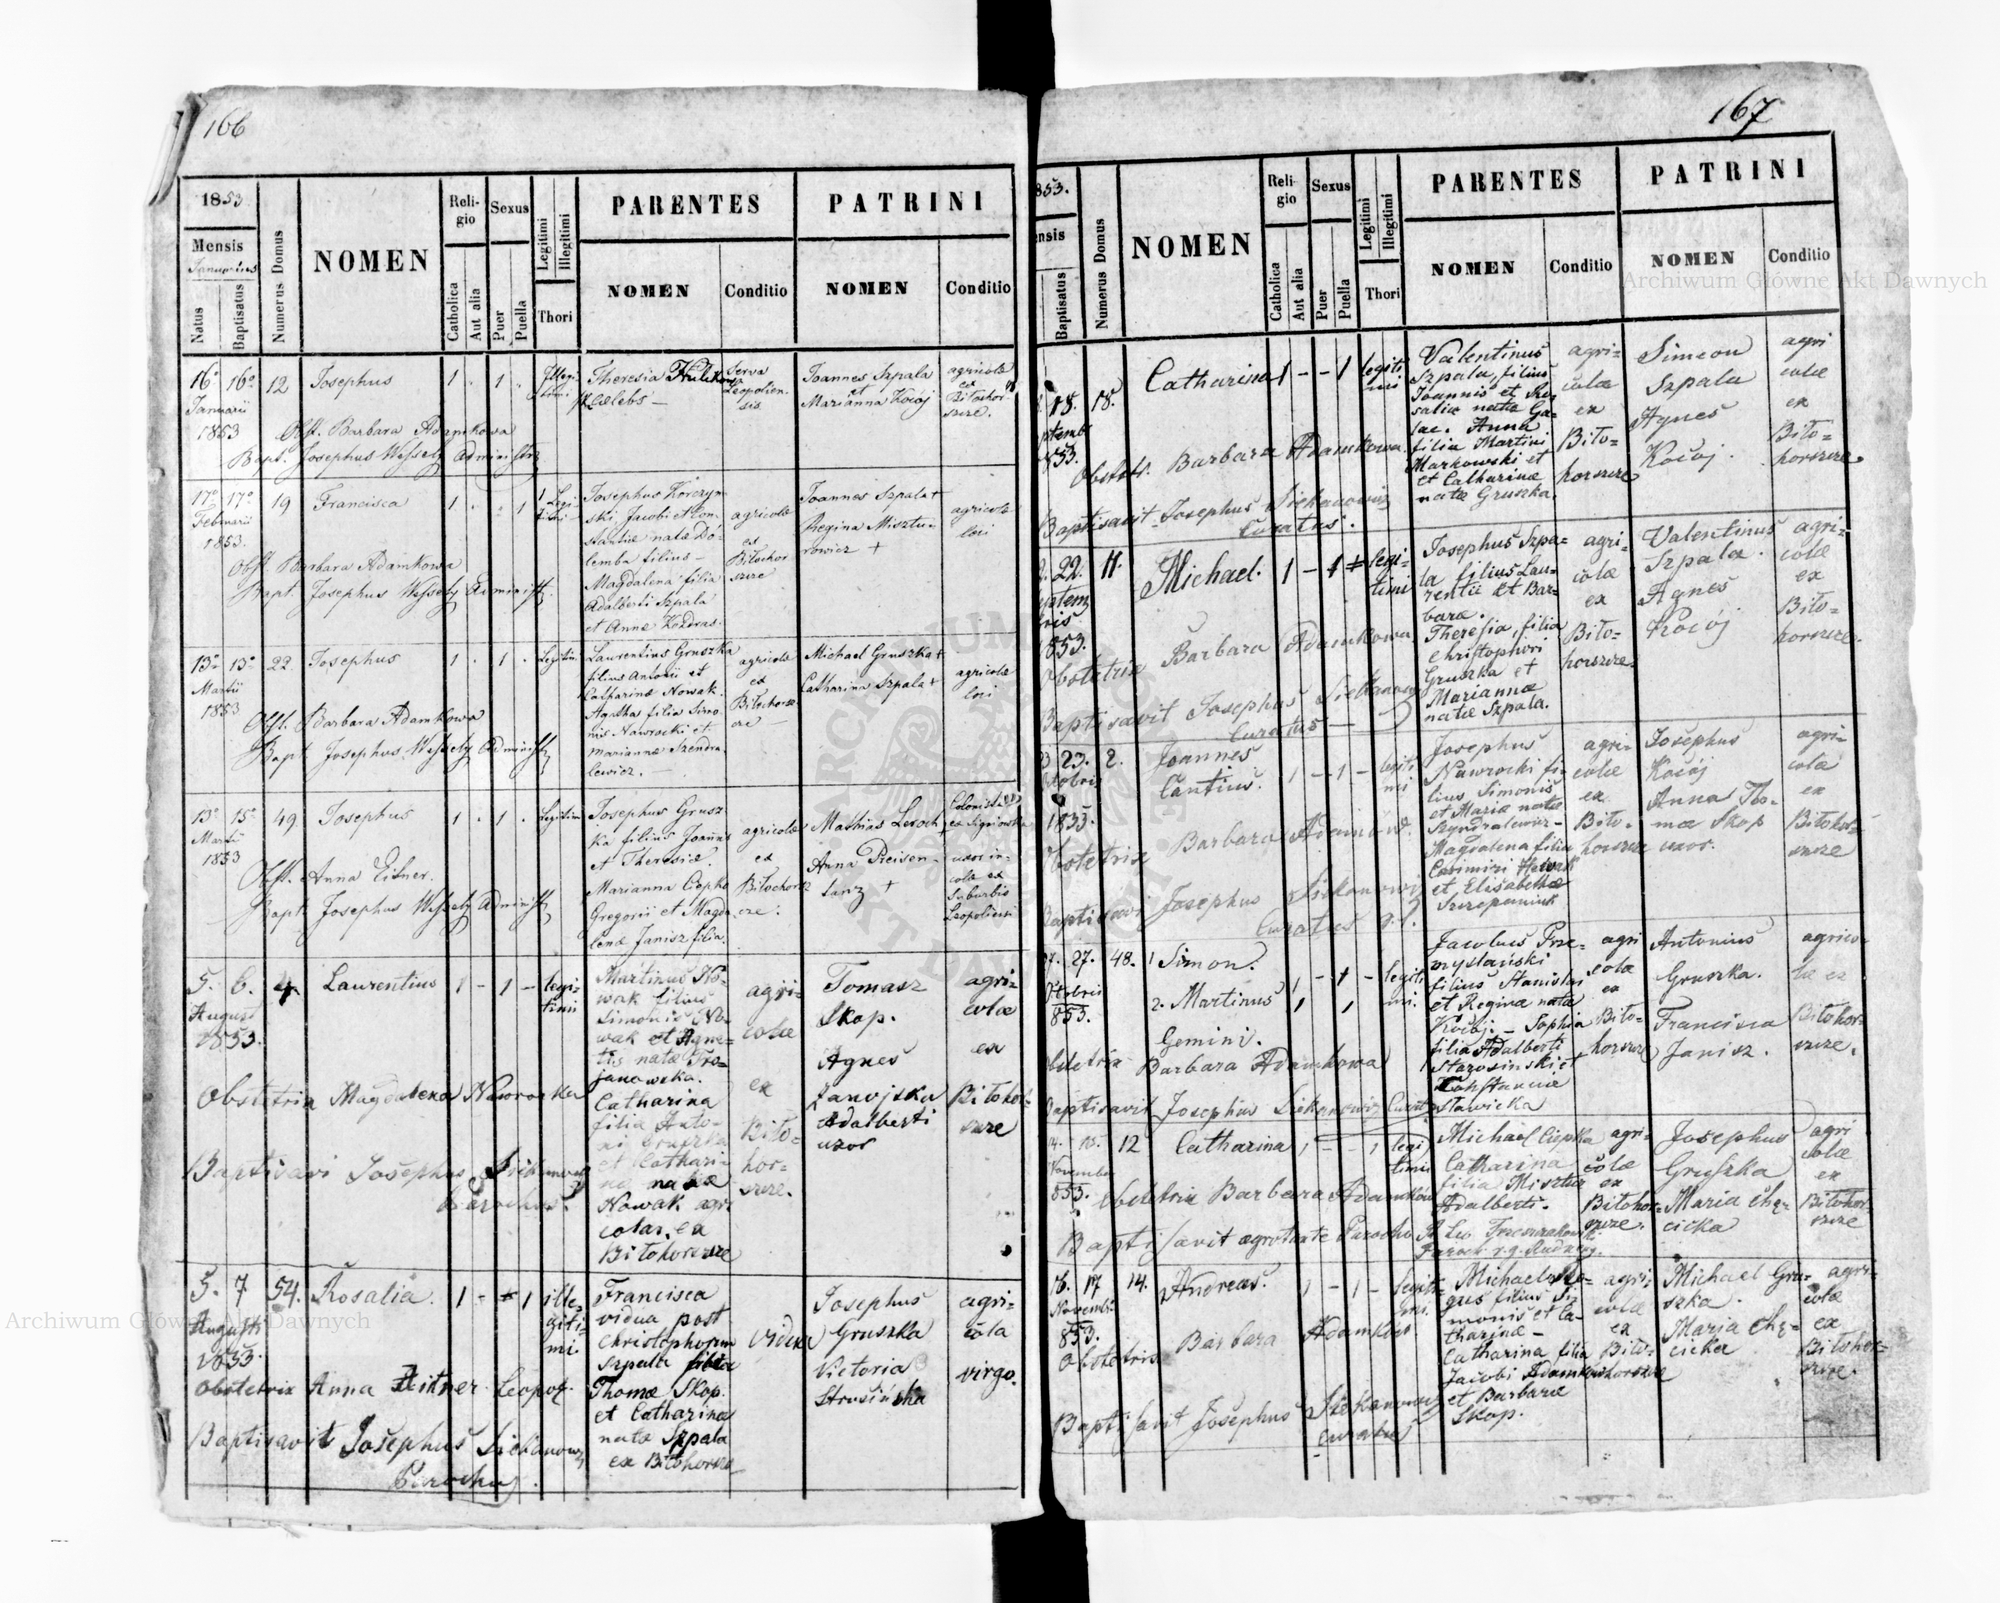 166
1853
Mensis
Januarius
Natus
Baptisatus
Numerus Domus
NOMEN
Religio
Catholica
Aut alia
Sexus
Puer
Puella
Legitimi
Illegitimi
Thori
PARENTES
NOMEN
Conditio
PATRINI
NOMEN
Conditio
16a 16a 12 Josephus 1 . 1 .
Januarii
1853
Illegi-
timi
Theresia
Caelebs —
Serva
Leopolien-
sis
Joannes Szpala
et
Marianna Kocój
agricolae
ex
Biłohor-
szcze.
Obst. Barbara Adamkowa
Bapt. Josephus Wessely Administr
17a 17a 19 Francisca 1 . . 1
Februarii
1853.
Legi-
timi
Josephus Korczyn-
ski, Jacobi et Con-
stantiae nata Do-
lemba filius —
Magdalena filia
Adalberti Szpala
et Annae Kozdras.
agricolae
ex
Biłohor
szcze
Joannes Szpala +
Regina Misztu-
rowicz +
agricolae
loci
Obst. Barbara Adamkowa
Bapt. Josephus Wessely Administr.
13a 13a 22. Josephus 1 . 1 . Legitim
Martii
1853
Laurentius Gruszka
filius Antonii et
Catharinae Nowak.
Agatha filia Simo
nis Nawrocki et
Mariannae Szendra
lewicz. —
agricolae
ex
Biłohorsz
cze —
Michael Gruszka +
Catharina Szpala +
agricolae
loci
Obst. Barbara Adamkowa
Bapt. Josephus Wessely Administr
13a 15a 49. Josephus 1 . 1 . Legitim
Martii
1853
Josephus Grusz
ka filius Joannis
et Theresiae.
Marianna Ciepka
Gregorii et Magda
lenae Janisz filia.
agricolae
ex
Biłohorsz
cze.
Mathias Leroch
Anna Preisen-
tanz +
Colonista
ex Signiowka
uxor in-
colae ex
Suburbio
Leopoliensi
Obst. Anna Eitner.
Bapt. Josephus Wessely Administr
5. 6. 4. Laurentius 1 - 1 - legi-
timi
August
1853.
Martinus No-
wak filius
Simonis No-
wak et Agne-
tis nata Tro-
janowska.
Catharina
filia Anto-
ni Gruszka
et Cathari-
na nata
Nowak agri
colar. ex
Biłohorszcze
agri-
colae
ex
Biło-
hor-
szcze.
Tomasz
Skop.
Agnes
Zanojska
Adalberti
uxor
agri-
colae
ex
Biłohor-
szcze
Obstetrix Magdalena Nawrocka
Baptisavi Josephus
Parochus.
5. 7. 54. Rosalia. 1 - 1 ille-
giti-
mi
Augusti
1853.
Francisca
vidua post
Christophorum
Szpala filia
Thomae Skop.
et Catharinae
nata Szpala
ex Biłohorszcze
vidua
Josephus
Gruszka
Victoria
Strusińska
agri-
cola
virgo.
Obstetrix Anna Eitner Leopol.
Baptisavit Josephus Siekanowicz
Parochus.
167
853.
nsis
Baptisatus
Numerus Domus
NOMEN
Religio
Catholica
Aut alia
Sexus
Puer
Puella
Legitimi
Illegitimi
Thori
PARENTES
NOMEN
Conditio
PATRINI
NOMEN
Conditio
18. 18. Catharina 1 - - 1 legiti
mi
ptembr
853.
Valentinus
Szpala, filius
Joannis et Ro-
salia nata Ga-
jac. Anna
filia Martini
Markowski et
et Catharinae
nata Gruszka.
agri-
colae
ex
Biło-
horszcze
Simeon
Szpala
Agnes
Kocój.
agri
colae
ex
Biło-
horszcze.
Obstetr. Barbara Adamkowa.
Baptisavit Josephus Siekanowicz
Curatus.
22. 11. Michael. 1 - 1 legi-
timi
eptem
bris
853.
Josephus Szpa-
la filius Lau-
rentii et Bar-
bara.
Theresia, filia
Christophori
Gruszka et
Mariannae
nata Szpala.
agri-
colae
ex
Biło-
horszcze.
Valentinus
Szpala.
Agnes
Kocój
agri-
colae
ex
Biło-
horszcze.
Obstetrix Barbara Adamkowa
Baptisavit Josephus Siekanowicz
Curatus —
23. 2. Joannes
Cantius. 1 - 1 - legiti
mi
Octobris
1853.
Josephus
Nawrocki fi-
lius Simonis
et Maria nata
Szyndralewicz —
Magdalena filia
Casimiri
et Elisabethae
Szczepaniuk
agri-
colae
ex
Biło-
horszcze
Josephus
Kocój
Anna Tho-
mae Skop
uxor.
agri-
colae
ex
Biłohor-
szcze
Obstetrix Barbara Adamków.
Baptisavi Josephus Siekanowicz
Curatus
27. 27. 48. 1 Simon. 1 - 1 - legiti
mi.
Octobris
853.
2. Martinus
Gemini.
Jacobus Prze-
mysłański
filius Stanislai
et Regina nata
Kocój. — Sophia
filia Adalberti
Starosinski et
Constanciae
Sławicka
agri
colae
ex
Biło-
horszcze
Antonius
Gruszka.
Francisca
Janisz.
agrico-
lae ex
Biłohor-
szcze.
Obstetrix Barbara Adamkowa
Baptisavit Josephus Siekanowicz Curat
14. 15. 12 Catharina 1 - - 1 legi
timi
November
853.
Michael Ciepka
Catharina
filia Misztur
Adalberti.
agri-
colae
ex
Biłohor-
szcze.
Josephus
Gruszka
Maria Chę-
cicka
agri
colae
ex
Biłohor-
szcze
Obstetrix Barbara Adamków
Baptisavit aegrotante Parocho
16. 17 14. Andreas. 1 - 1 - legiti-
mi.
Novembr
853.
Michael
filius Si-
monis et Ca-
tharinae —
Catharina filia
Jacobi Adamków
et Barbarae
Skop.
agri-
colae
ex
Biło-
horszcze
Michael Gru-
szka.
Maria Chę-
cicka
agri-
colae
ex
Biłohor-
szcze.
Obstetrix Barbara Adamków
Baptisavit Josephus Siekanowicz
Curatus
Archiwum Główne Akt Dawnych
Archiwum Główne Akt Dawnych